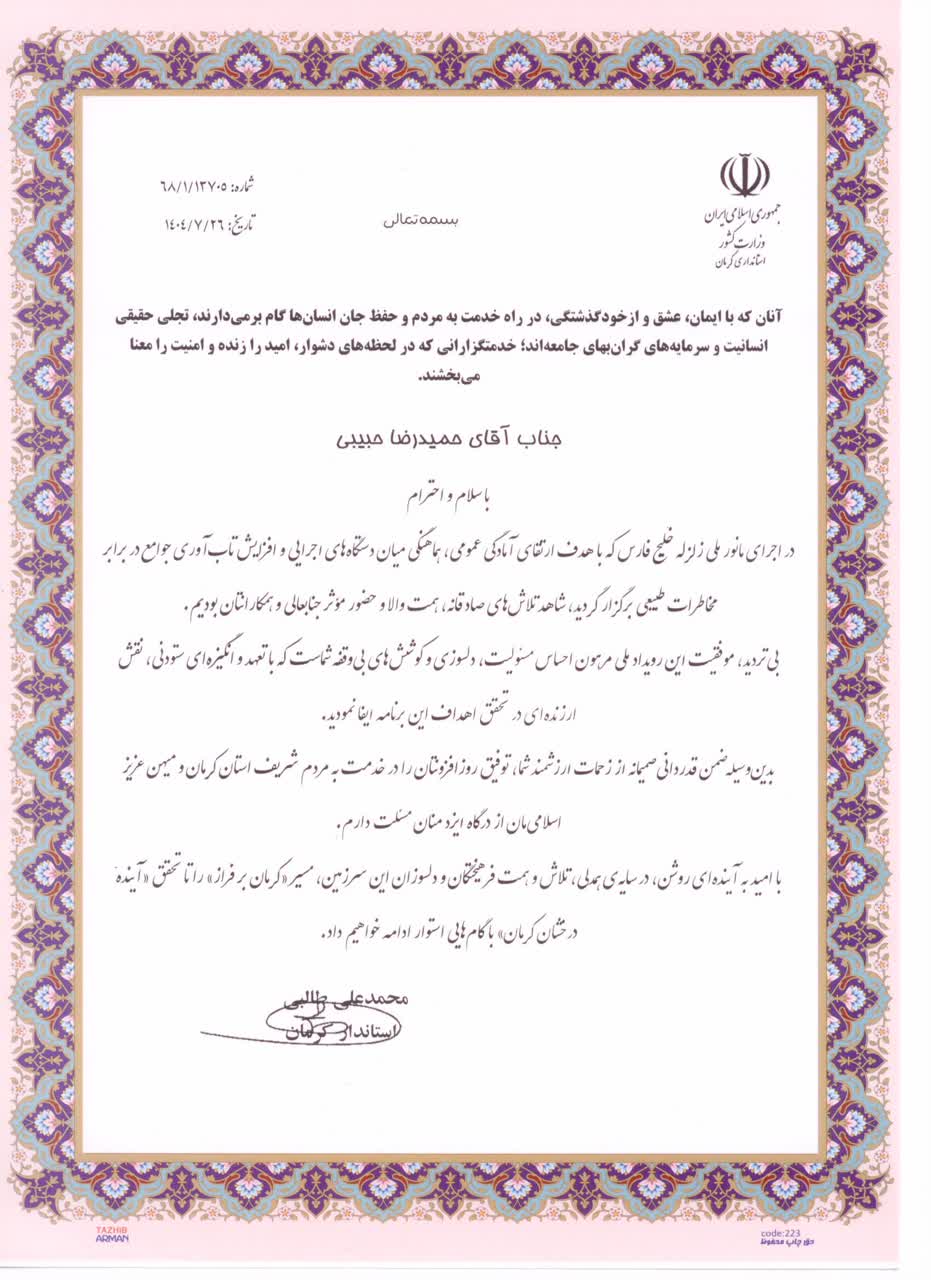 جمهوری اسلامی ایران
وزارت کشور
استانداری کرمان
بسمه تعالی
شماره: ۶۸/۱/۱۳۷۰۵
تاریخ: ۱۴۰۴/۷/۲۶
آنان که با ایمان، عشق و ازخودگذشتگی، در راه خدمت به مردم و حفظ جان انسان‌ها گام برمی‌دارند، تجلی حقیقی
انسانیت و سرمایه‌های گران‌بهای جامعه‌اند؛ خدمتگزارانی که در لحظه‌های دشوار، امید را زنده و امنیت را معنا
می‌بخشند.
جناب آقای حمیدرضا حبیبی
با سلام و احترام
در اجرای مانور ملی زلزله خلیج فارس که با هدف ارتقای آمادگی عمومی، هماهنگی میان دستگاه‌های اجرایی و افزایش تاب‌آوری جوامع در برابر
مخاطرات طبیعی برگزار گردید، شاهد تلاش‌های صادقانه، همت والا و حضور مؤثر جنابعالی و همکارانتان بودیم.
بی‌تردید، موفقیت این رویداد ملی مرهون احساس مسئولیت، دلسوزی و کوشش‌های بی‌وقفه شماست که با تعهد و انگیزه‌ای ستودنی، نقش
ارزنده‌ای در تحقق اهداف این برنامه ایفا نمودید.
بدین‌وسیله ضمن قدردانی صمیمانه از زحمات ارزشمند شما، توفیق روزافزونتان را در خدمت به مردم شریف استان کرمان و میهن عزیز
اسلامی‌مان از درگاه ایزد منان مسئلت دارم.
با امید به آینده‌ای روشن، در سایه‌ی همدلی، تلاش و همت فرهیختگان و دلسوزان این سرزمین، مسیر «کرمان بر فراز» را تا تحقق «آینده
درخشان کرمان» با گام‌هایی استوار ادامه خواهیم داد.
محمدعلی طالبی
استاندار کرمان
TAZHIB
ARMAN
code:223
حق چاپ محفوظ